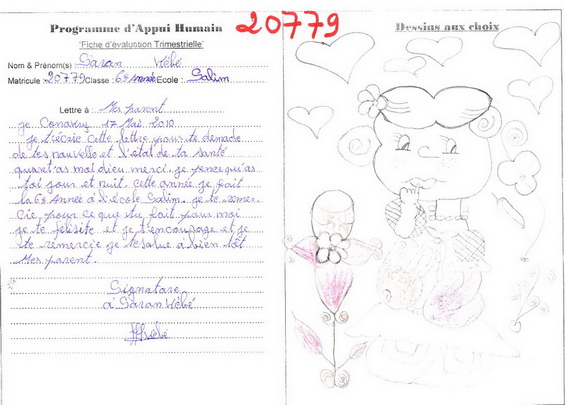 Programme d'Appui Humain
20779
"Fiche d'évaluation Trimestrielle"
Nom & Prénom(s) Saran Hébé
Matricule 20779 Classe : 6e Année Ecole : Salim
Lettre à Mes parent
je Conakry 17 Mai 2010
je t'écris cette lettre pour te demade
de tes nouvelle et l'état de ta santé
quant as moi dieu merci. je pence qu'as
toi jour et nuit. cette année je fait
la 6e Année à l'école Salim. je te remer
Cie pour ce que tu fait pour moi
je te félisite et je t'encourage et je
te rémercie je te salue à bien tôt
Mes parent.
Signature
à Saran Hébé
Hébé
Dessins aux choix